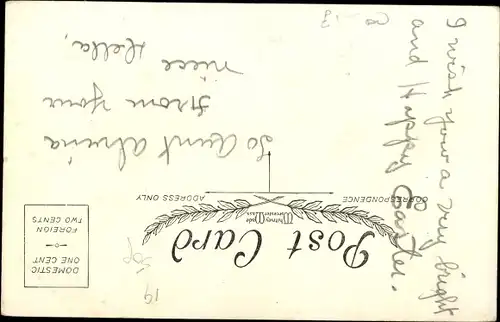 Post Card
Whitney Made
Worcester, Mass
CORRESPONDENCE
ADDRESS ONLY
DOMESTIC
ONE CENT
FOREIGN
TWO CENTS
I wish you a very bright
and Happy Easter.
To Aunt Alvina
From your
niece Hella,
19